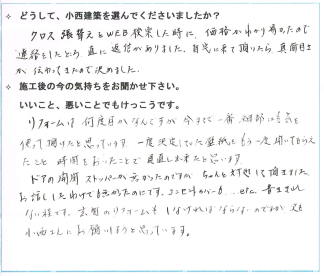 ✧ どうして、小西建築を選んでくださいましたか？
クロス張替えをWEB検索した時に、価格がわかり易かったので
連絡をしたところ、直に返信がありました。自宅に来て頂いたら、真面目さ
が伝わってきたので決めました。
✧ 施工後の今の気持ちをお聞かせ下さい。
いいこと、悪いことでもけっこうです。
リフォームは何度目かなんですが今までで一番細部にも気を
使って頂けたと思っています。一度決定していた壁紙をもう一度聞いてもらえ
たこと 時間をおいたことで見直し出来たと思います。
ドアの開閉ストッパーが無かったのですが ちゃんと対処して頂きました。
お話ししたわけでも無かったのにです。コンセントカバーも...etc. 書ききれ
ない程です。玄関のリフォームもしなければならないのですが 又も
小西さんにお願いしようと思っています。